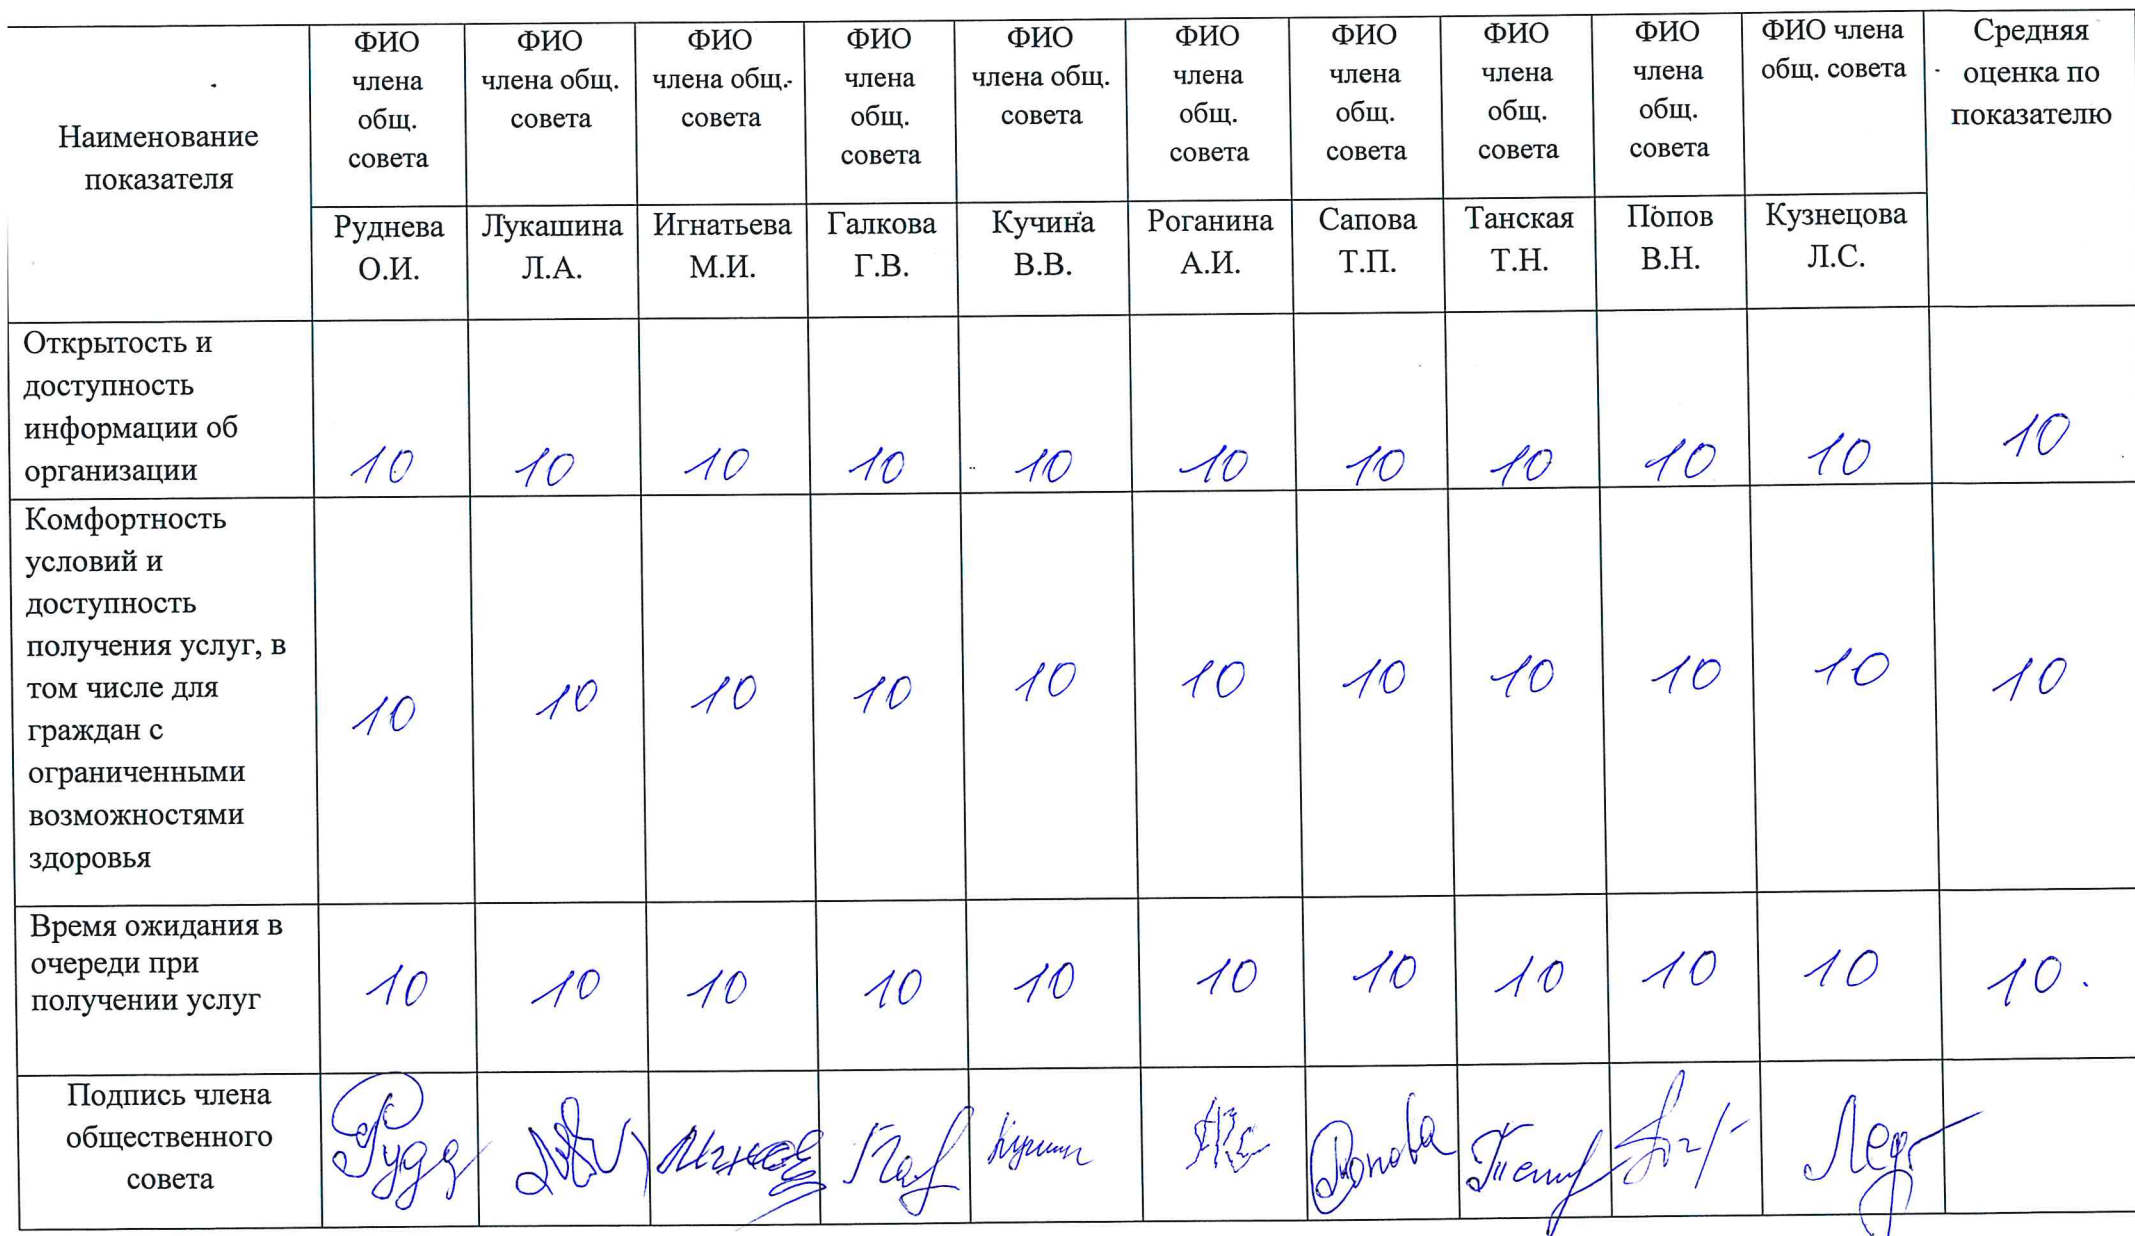 Наименование
показателя
ФИО
члена
общ.
совета
ФИО
члена общ.
совета
ФИО
члена общ.
совета
ФИО
члена
общ.
совета
ФИО
члена общ.
совета
ФИО
члена
общ.
совета
ФИО
члена
общ.
совета
ФИО
члена
общ.
совета
ФИО
члена
общ.
совета
ФИО члена
общ. совета
Средняя
оценка по
показателю
Руднева
О.И.
Лукашина
Л.А.
Игнатьева
М.И.
Галкова
Г.В.
Кучина
В.В.
Роганина
А.И.
Сапова
Т.П.
Танская
Т.Н.
Попов
В.Н.
Кузнецова
Л.С.
Открытость и
доступность
информации об
организации
10 10 10 10 10 10 10 10 10 10 10
Комфортность
условий и
доступность
получения услуг, в
том числе для
граждан с
ограниченными
возможностями
здоровья
10 10 10 10 10 10 10 10 10 10 10
Время ожидания в
очереди при
получении услуг
10 10 10 10 10 10 10 10 10 10 10.
Подпись члена
общественного
совета